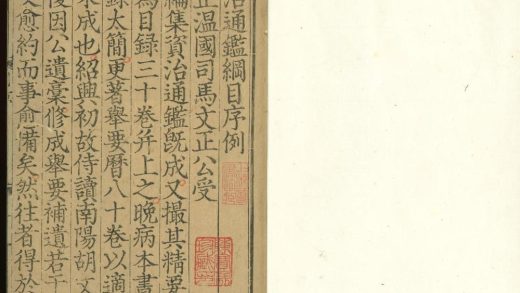 治通鑑綱目序例
正温國司馬文正公受
編集資治通鑑旣成又撮其精要
為目録三十卷并上之晚病本書
録大簡更著舉要曆八十卷以適
未成也紹興初故侍讀南陽胡文
復因公遺藁修成舉要補遺若干
文愈約而事愈備矣然往者得於